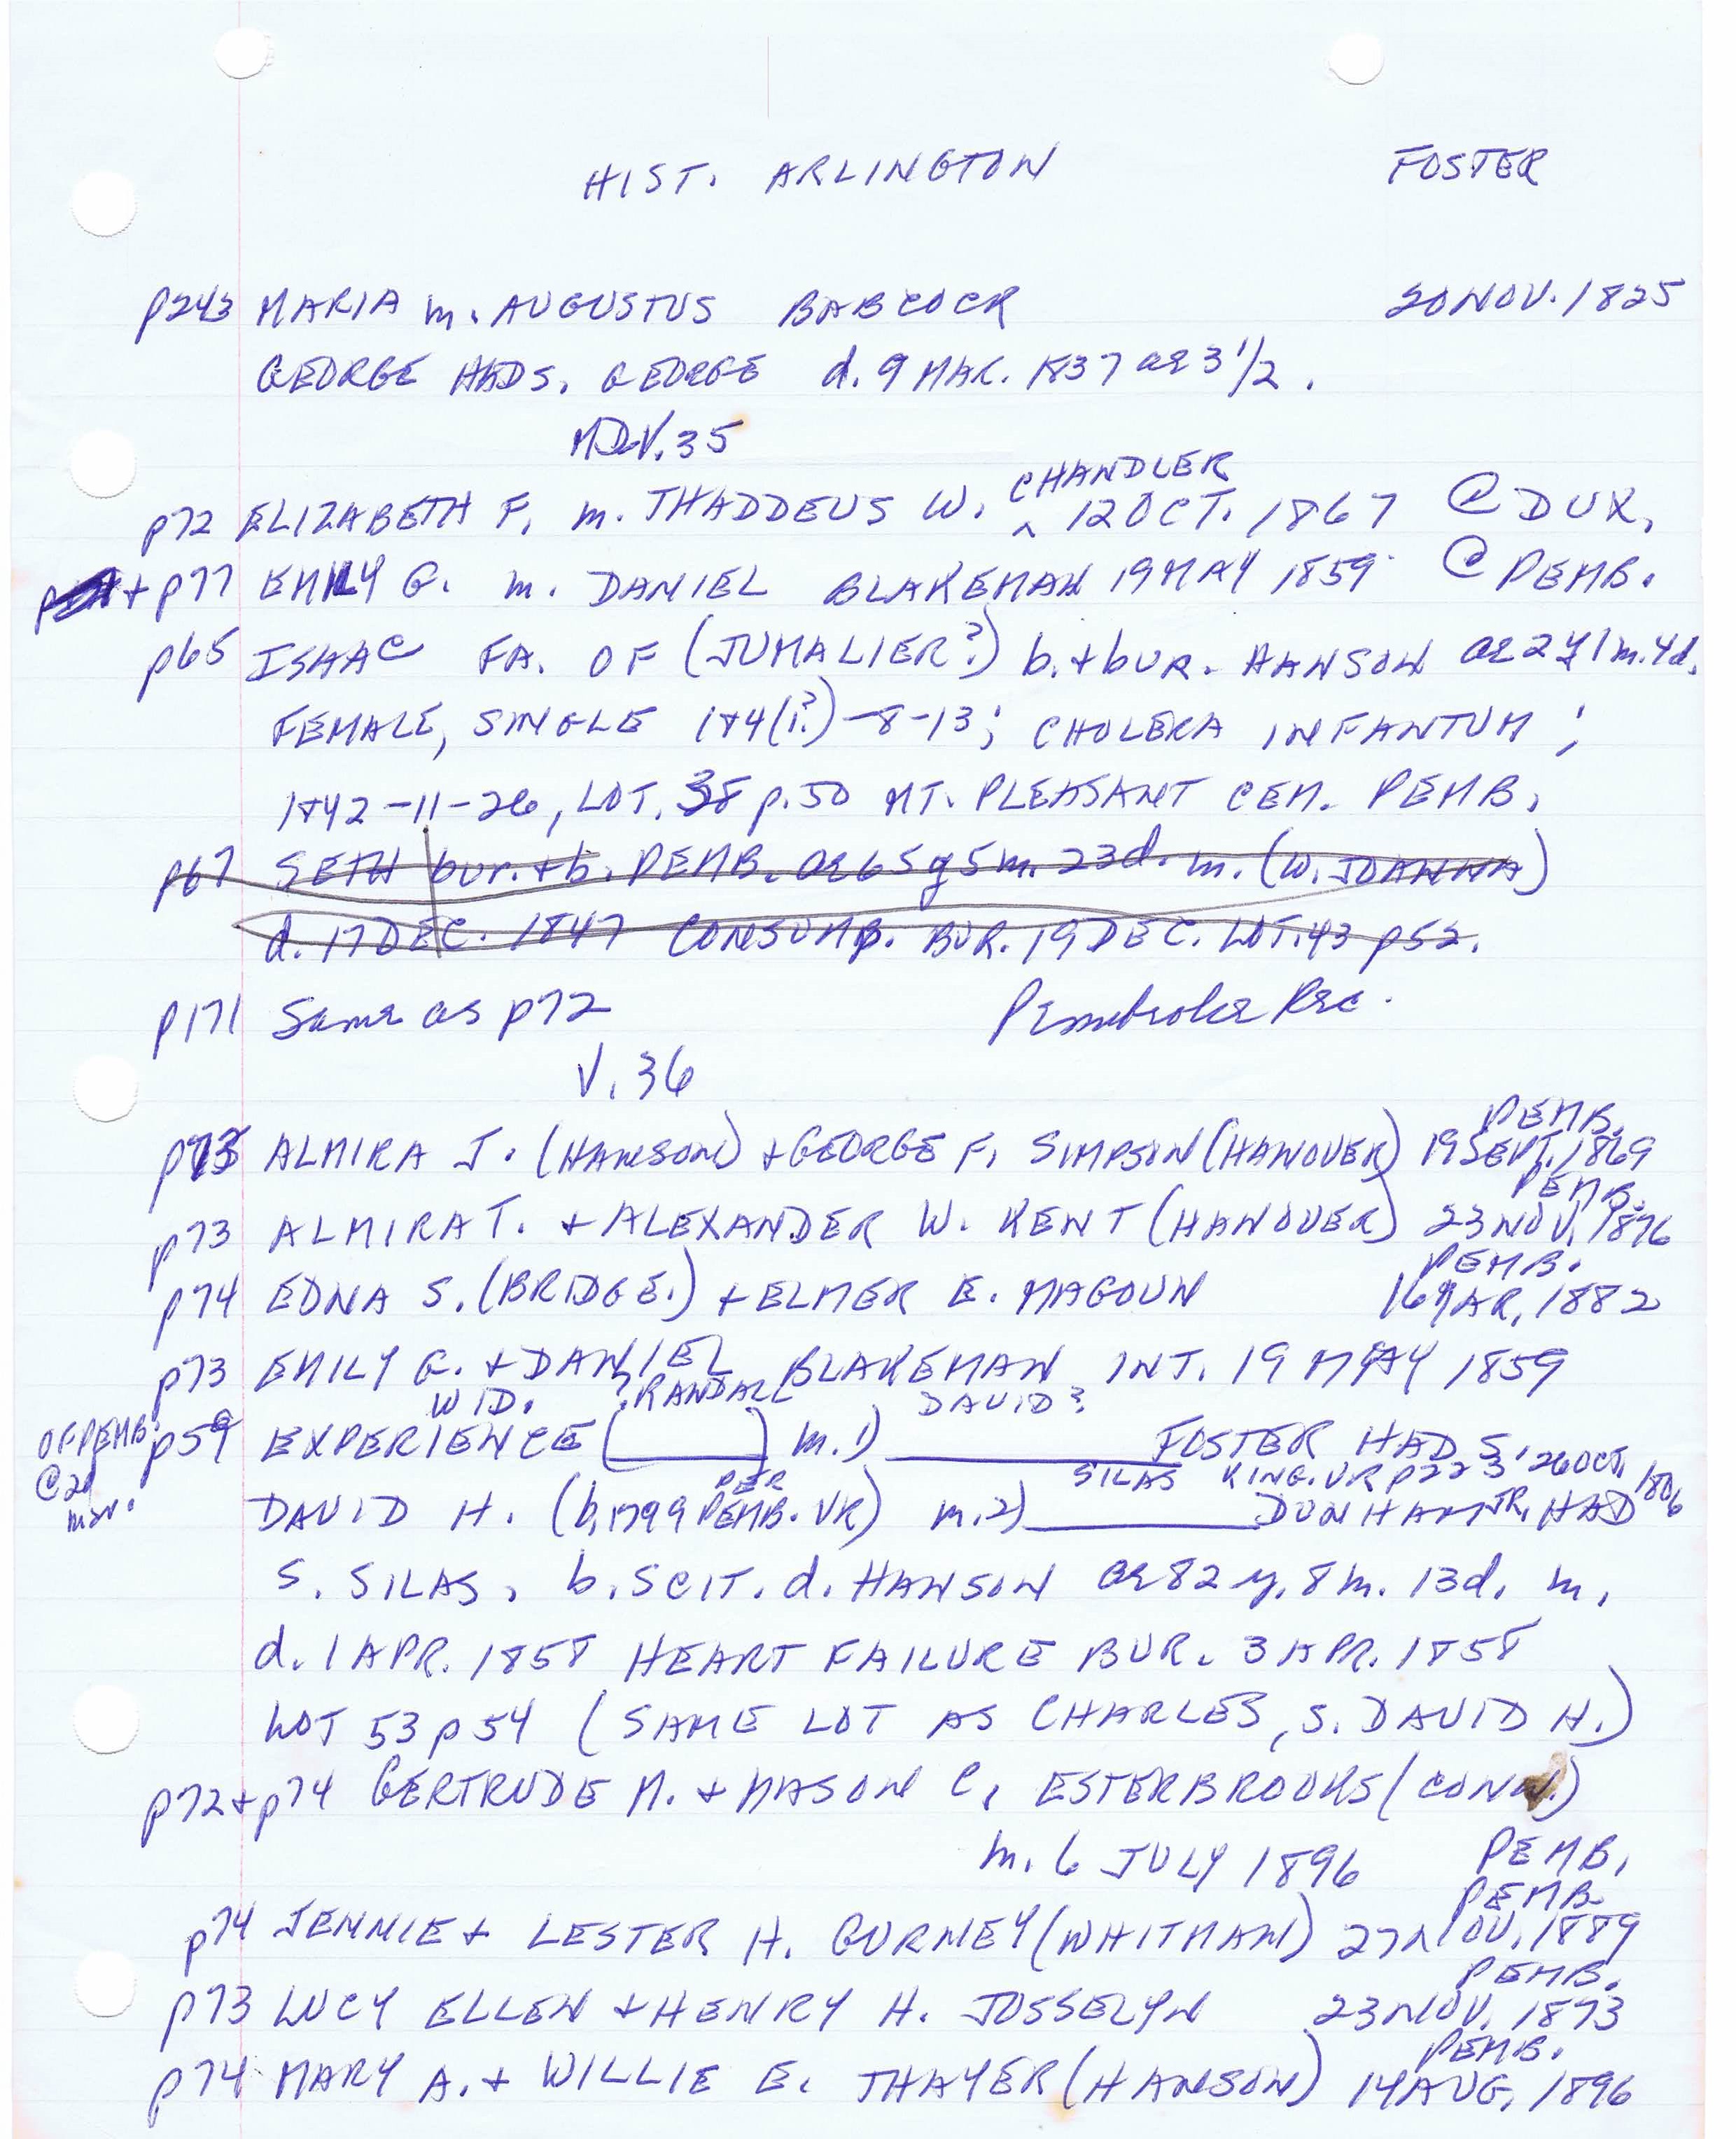 HIST. ARLINGTON FOSTER
p243 MARIA m. AUGUSTUS BABCOCK 20 NOV. 1825
GEORGE HAD S. GEORGE d. 9 MAR. 1837 ae 3 1/2.
MD V. 35
p72 ELIZABETH F. m. THADDEUS W. ^ CHANDLER 12 OCT. 1867 @ DUX.
+ p77 EMILY G. m. DANIEL BLAKEMAN 19 MAY 1859 @ PEMB.
p65 ISAAC FA. OF (JUMALIER?) b. + bur. HANSON ae 2y 1m. 4d.
FEMALE, SINGLE 184(1?)-8-13; CHOLERA INFANTUM;
1842-11-26, LOT. 38 p. 50 MT. PLEASANT CEM. PEMB.
p67 SETH bur. + b. PEMB. ae 65y 5m. 23d. m. (W. JOANNA)
d. 17 DEC. 1847 CONSUMP. BUR. 19 DEC. LOT. 43 p52.
p171 Same as p72 Pembroke Rec.
V. 36
PEMB.
p73 ALMIRA J. (HANSON) + GEORGE F. SIMPSON (HANOVER) 19 SEPT. 1869
PEMB.
p73 ALMIRA T. + ALEXANDER W. KENT (HANOVER) 23 NOV. 1876
PEMB.
p74 EDNA S. (BRIDGE.) + ELMER E. MAGOUN 16 MAR. 1882
p73 EMILY G. + DANIEL BLAKEMAN INT. 19 MAY 1859
WID. ?RANDALL DAVID?
OF PEMB. @ 2d mar. p59 EXPERIENCE [ ] m. 1) FOSTER HAD S.
PER SILAS KING. VR p223 26 OCT. 1806
DAVID H. (b. 1799 PEMB. VR) m. 2) DUNHAM JR. HAD
S. SILAS, b. SCIT. d. HANSON ae 82 y. 8 m. 13 d. m.
d. 1 APR. 1858 HEART FAILURE BUR. 3 APR. 1858
LOT 53 p54 (SAME LOT AS CHARLES, S. DAVID H.)
p72 + p74 GERTRUDE M. + MASON C. ESTERBROOKS (CONN.)
m. 6 JULY 1896 PEMB.
PEMB
p74 JENNIE + LESTER H. GURNEY (WHITMAN) 27 NOV. 1889
PEMB.
p73 LUCY ELLEN + HENRY H. JOSSELYN 23 NOV. 1873
PEMB.
p74 MARY A. + WILLIE E. THAYER (HANSON) 14 AUG. 1896